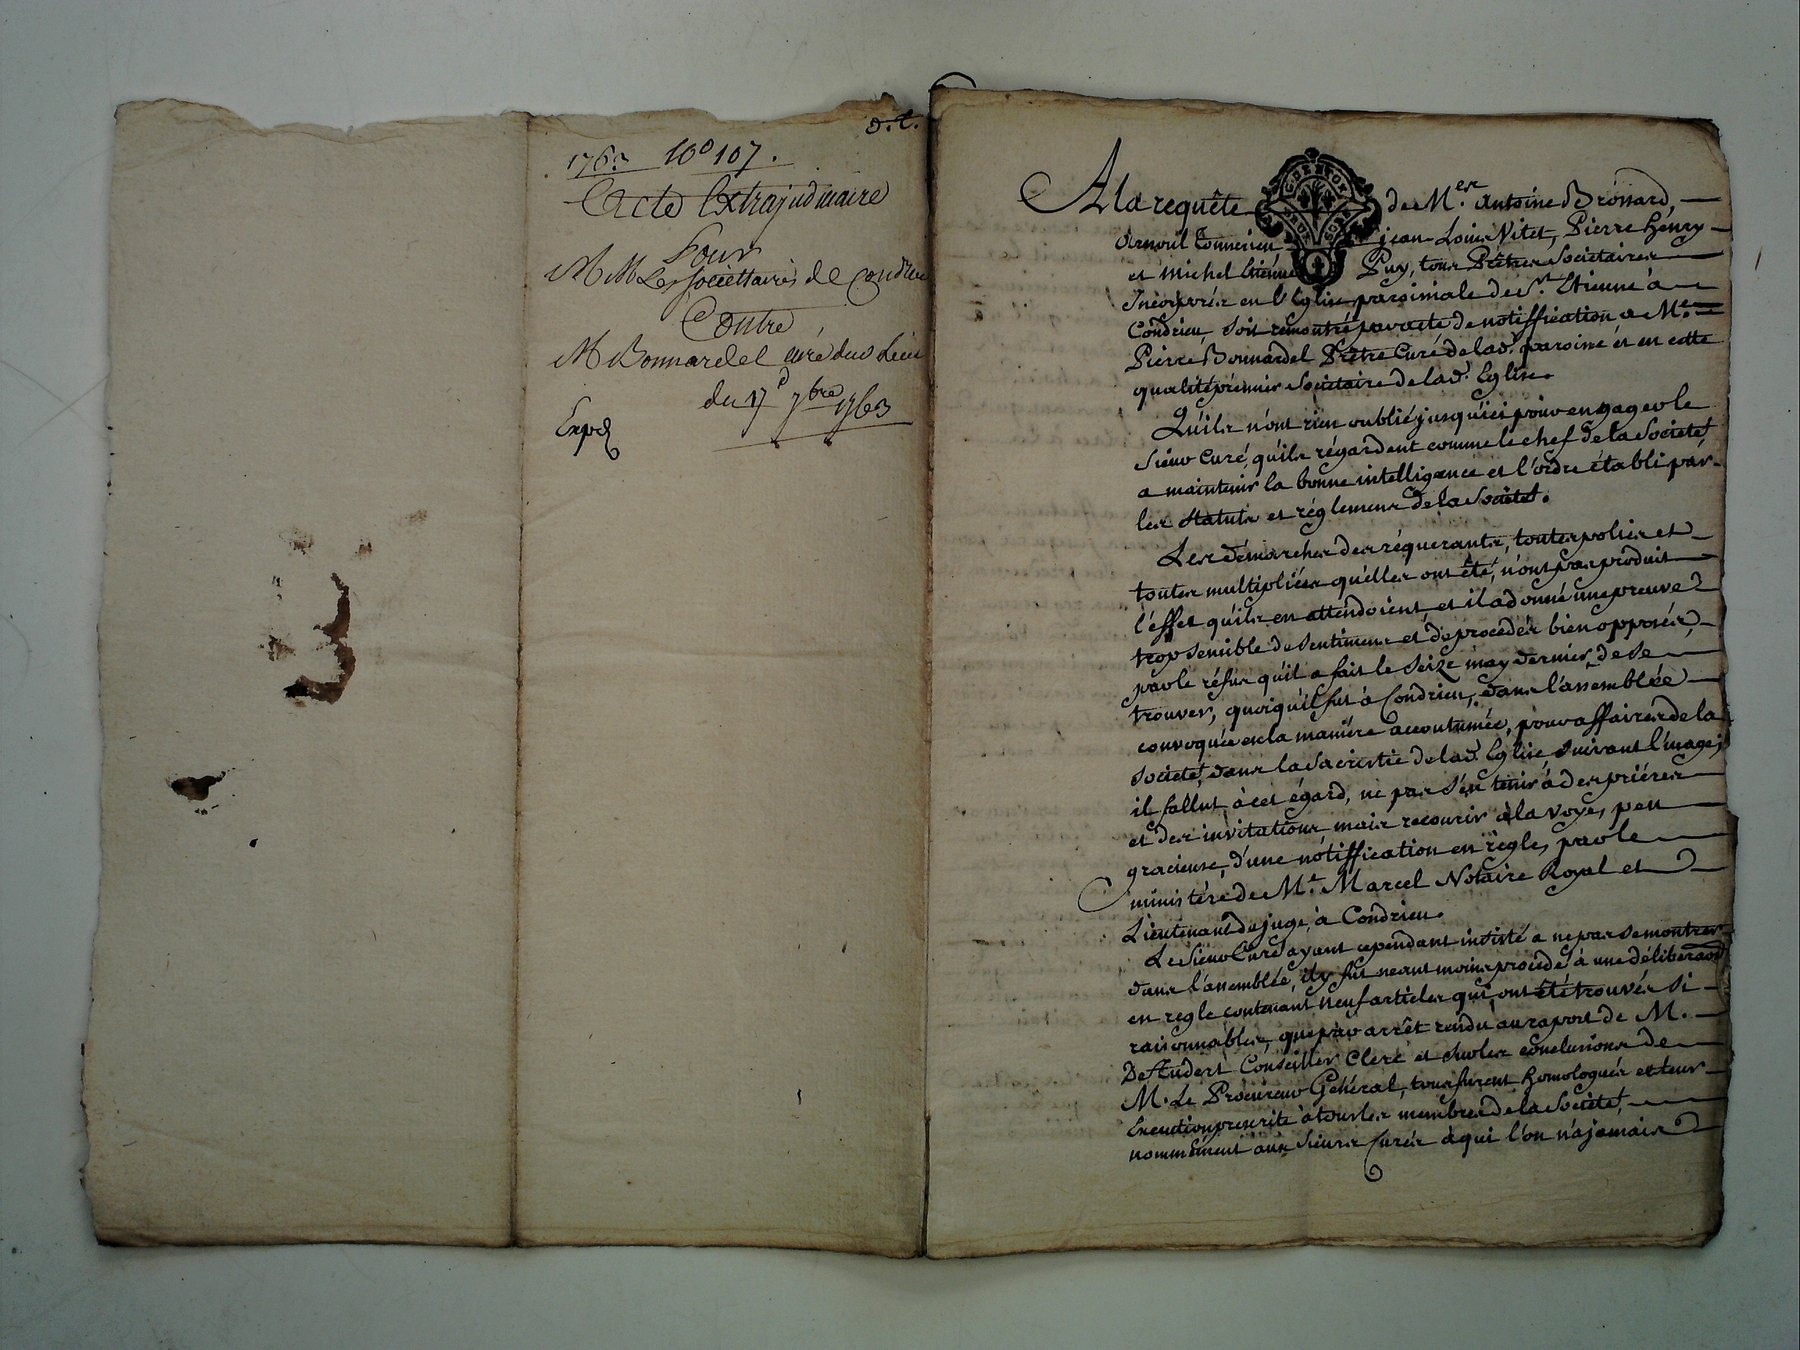 D.C.
1763 No 107.
Acte Extrajudiciaire
Pour
MM Les Societtaires de Condrieu
Contre
M Bonnardel curé dud Lieu
du 17e 7bre 1763
Exped
A la requête de M.es Antoine Brossard,
Arnoul Jean Louis Nitet, Pierre Henry
et Michel Etienne Puy, tous Prêtres Societaires
Incorporés en l'Eglise paroissiale de St. Etienne à
Condrieu, soit remontré par acte de notiffication a Me.
Pierre Bonnardel Prêtre Curé de lad. paroisse et en cette
qualité premier Societaire de lad. Eglise.
Qu'ils n'ont rien oublié jusqu'ici pour engager le
Sieur Curé, qu'ils régardent comme le chef de la Societé,
a maintenir la bonne intelligence et l'ordre établi par
les Statuts et réglemens de la Societé.
Les démarches des réquerants, toutes polies et
toutes multipliées qu'elles ont été, n'ont pas produit
l'effet qu'ils en attendoient et il a donné une preuve
trop sensible de sentimens et de procedés bien opposés,
par le réfus qu'il a fait le seize may dernier, de se
trouver, quoiqu'il fut à Condrieu, dans l'assemblée
convoquée en la manière accoutumée, pour affaires de la
societé, dans la Sacristie de lad. Eglise, suivant l'usage;
il fallut à cet égard, ne pas s'en tenir à des priéres
et des invitations, mais recourir à la voye, peu
gracieuse, d'une nótiffication en règle, par le
ministére de Me. Marcel Notaire Royal et
Lieutenant de juge, à Condrieu.
Le Sieur Curé ayant cependant insisté a ne pas se montrer
dans l'assemblée, il y fut neantmoins procédé a une déliberaon
en regle contenant neuf articles qui ont été trouvés si
raisonnables, que par arrêt rendu au raport de M.
De Audert Conseiller Clerc et sur les conclusions de
M. Le Procureur Général, tous furent homologués et leur
Execution prescrite à tous les membres de la Societé,
nommément aux Sieurs Curés à qui l'on n'a jamais